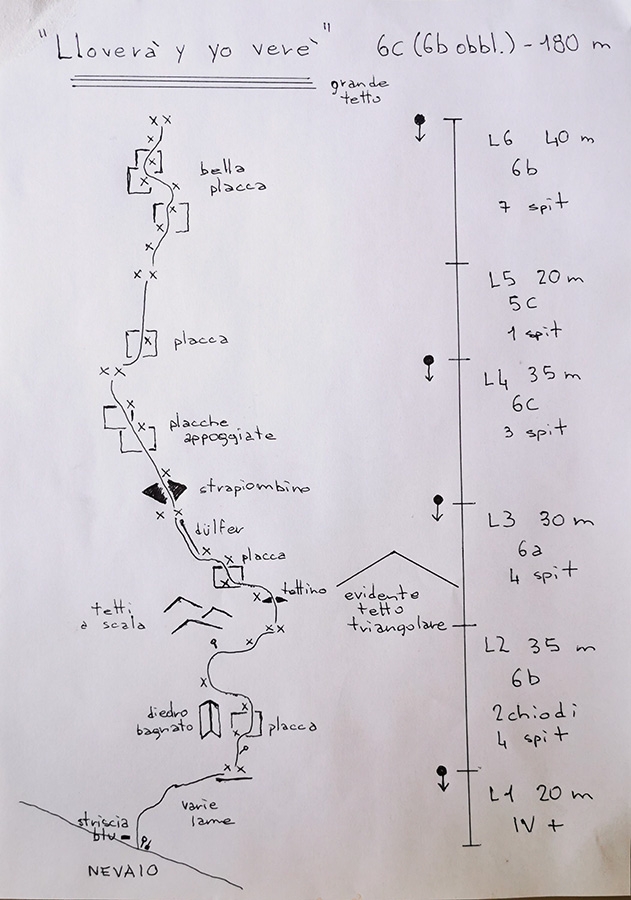 "Lloverà y yo verè"
6c (6b obbl.) - 180 m
grande
tetto
L6 40 m
6b
7 spit
bella
placca
L5 20 m
5c
1 spit
placca
L4 35 m
6c
3 spit
placche
appoggiate
strapiombino
dülfer
L3 30 m
6a
4 spit
placca
tettino
evidente
tetto
triangolare
tetti
a scala
L2 35 m
6b
2 chiodi
4 spit
diedro
bagnato
placca
L1 20 m
IV +
varie
lame
striscia
blu
NEVAIO